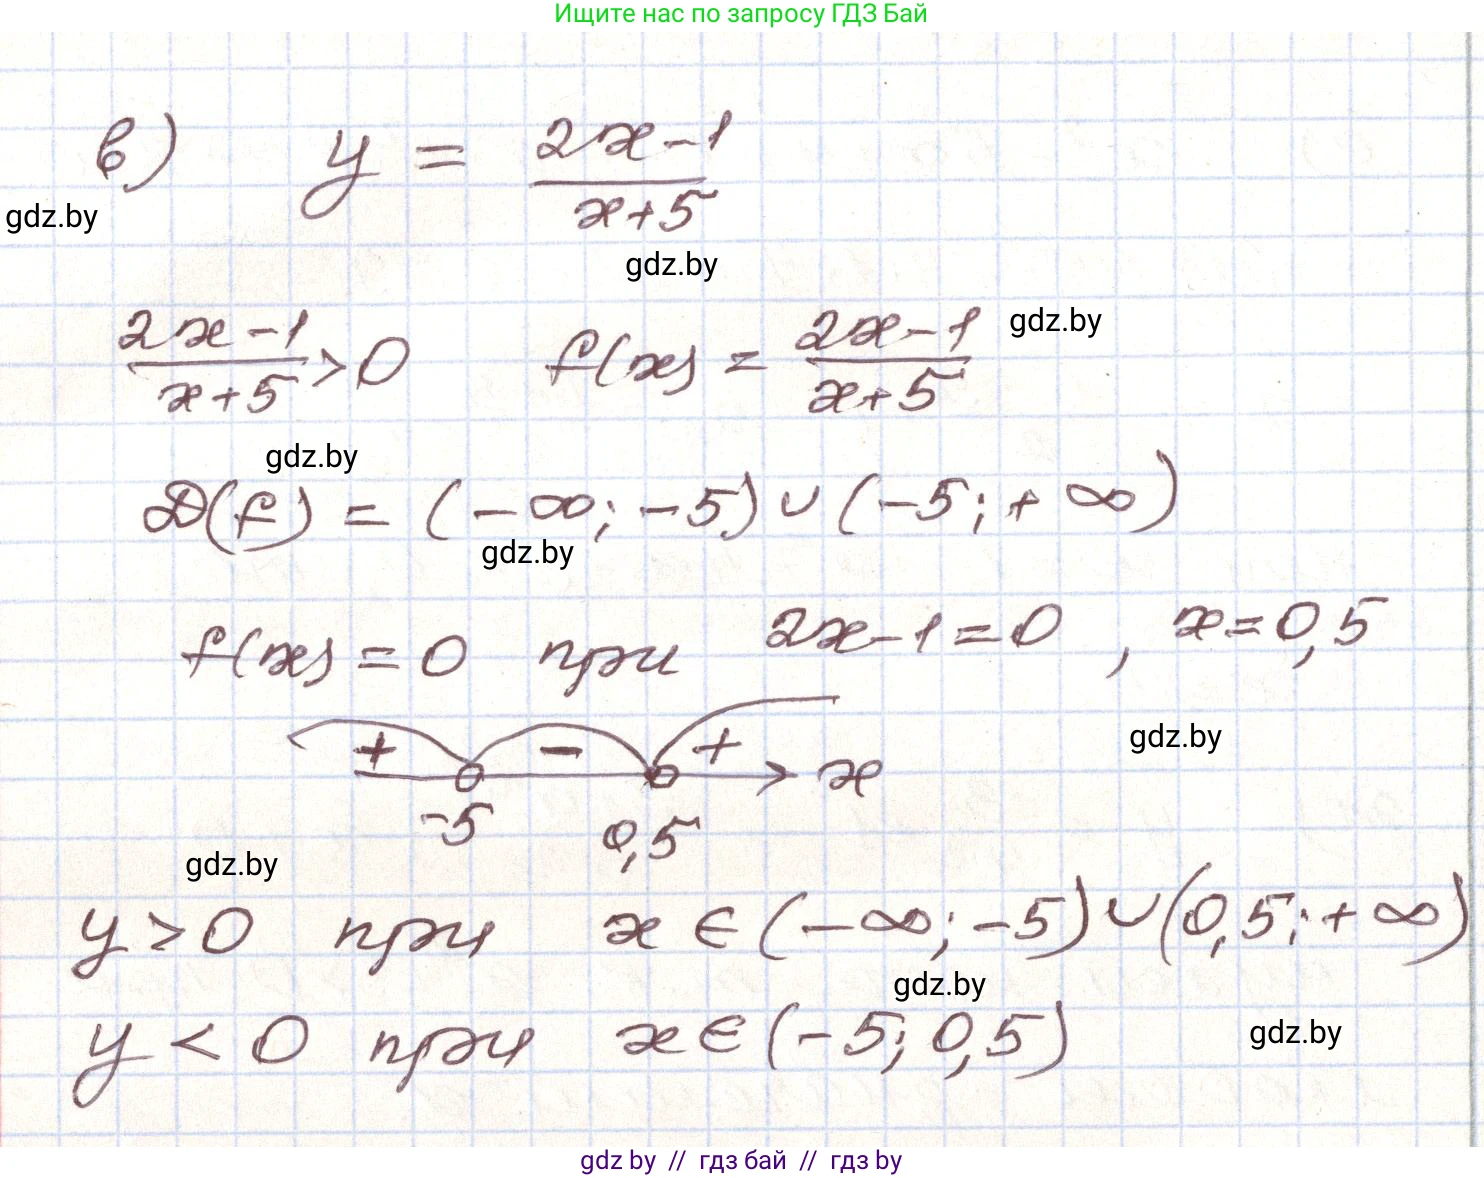 Ищите нас по запросу ГДЗ Бай
в) y = (2x-1)/(x+5)
gdz.by
gdz.by
(2x-1)/(x+5) > 0 f(x) = (2x-1)/(x+5)
gdz.by
gdz.by
D(f) = (-∞; -5) ∪ (-5; +∞)
gdz.by
f(x) = 0 при 2x-1=0, x=0,5
gdz.by
+ - + x
-5 0,5
gdz.by
y > 0 при x ∈ (-∞; -5) ∪ (0,5; +∞)
gdz.by
y < 0 при x ∈ (-5; 0,5)
gdz.by
gdz by // гдз бай // гдз by